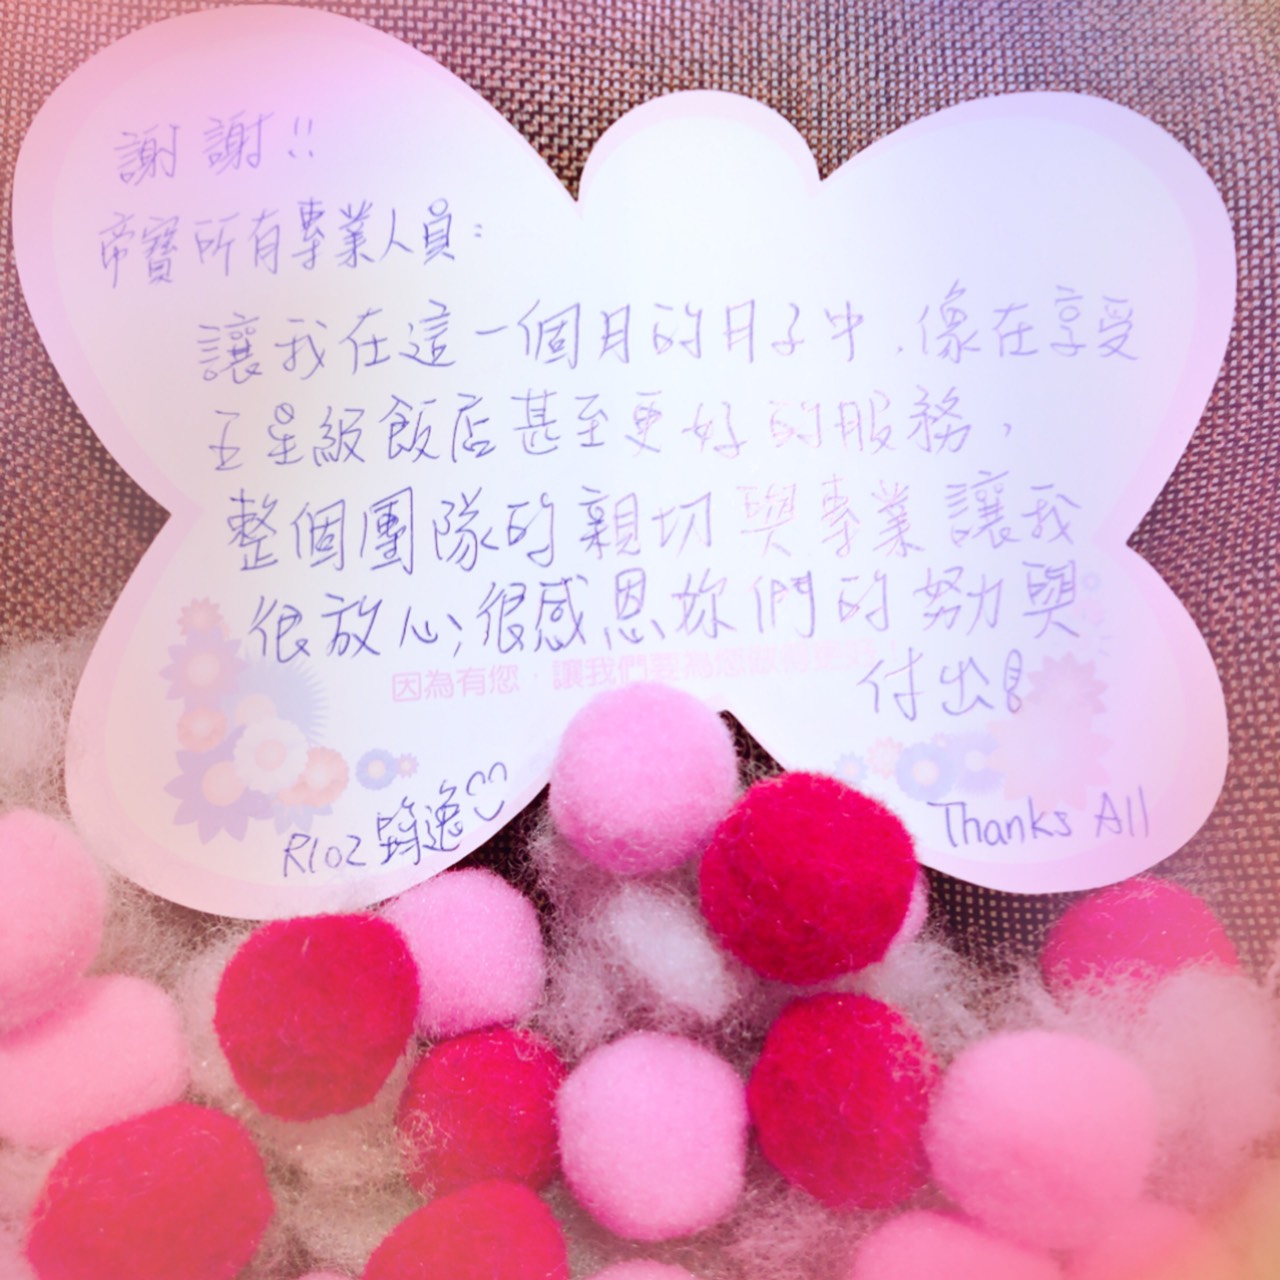 謝謝!!
帝寶所有專業人員:
讓我在這一個月的月子中,像在享受
五星級飯店甚至更好的服務,
整個團隊的親切與專業讓我
很放心,很感恩妳們的努力與
付出!
因為有您,讓我們要為您做得更好!
R102 筠逸
Thanks All